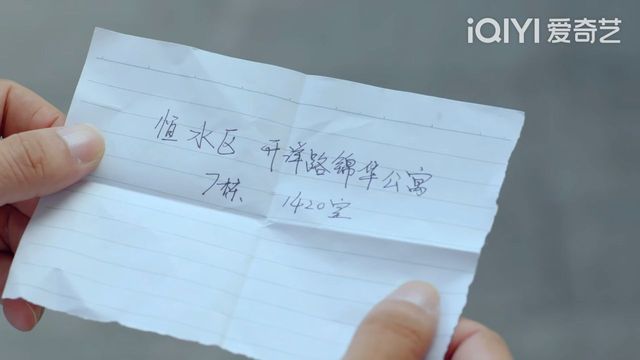 iQIYI 爱奇艺
恒水区 开洋路锦华公寓
7栋 1420室